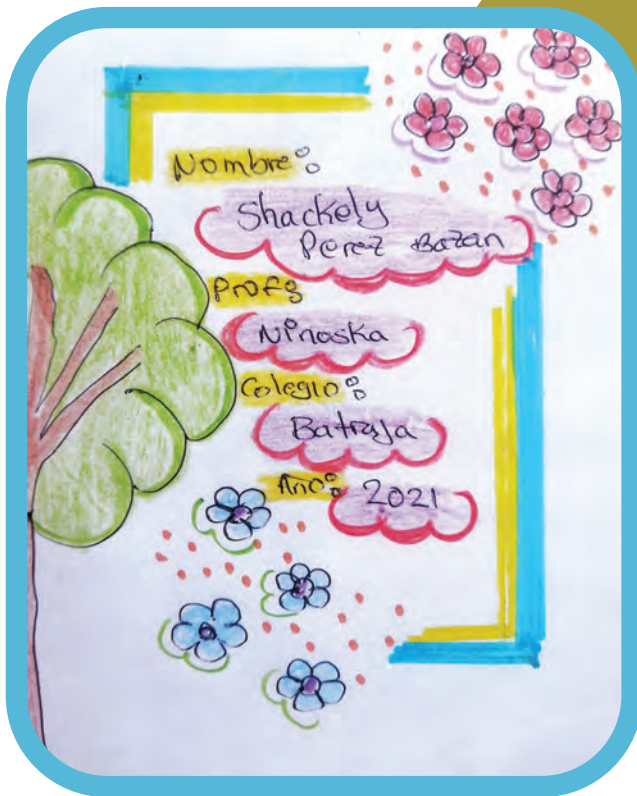 Nombre:
Shackely
Perez Bazan
Profs
Ninoska
Colegio:
Batraja
Año: 2021